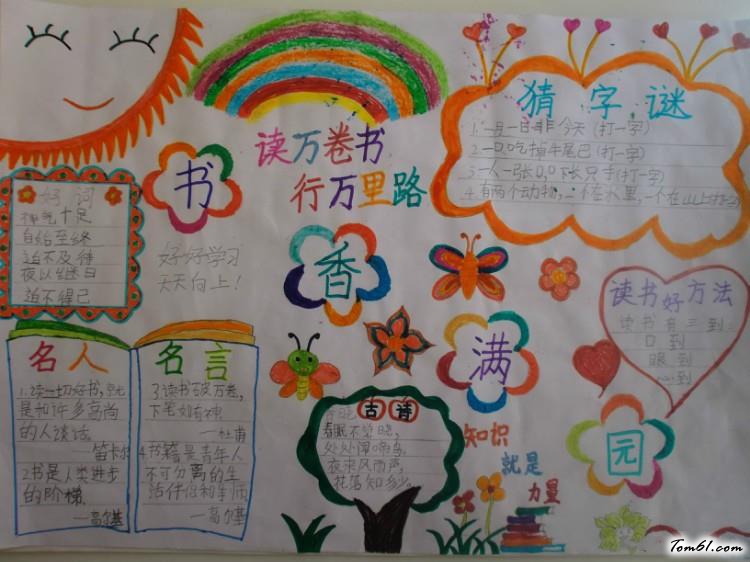 读万卷书
行万里路
书
香
满
园
好词
神气十足
自始至终
迫不及待
夜以继日
迫不得已
好好学习
天天向上！
猜字谜
1.一月一日非今天(打一字)
2.一口吃掉牛尾巴(打一字)
3.一人一张口,口下长只手(打一字)
4.有两个动物,一个在水里,一个在山上(打一字)
名人
1.读一切好书,就
是和许多高尚
的人谈话。
—笛卡尔
2书是人类进步
的阶梯.
—高尔基
名言
3.读书破万卷,
下笔如有神
—杜甫
4.书籍是青年人
不可分离的生
活伴侣和导师
—高尔基
古诗
春晓
春眠不觉晓,
处处闻啼鸟。
夜来风雨声,
花落知多少。
读书好方法
读书有三到:
口到
眼到
心到
知识
就是
力量
Tom61.com